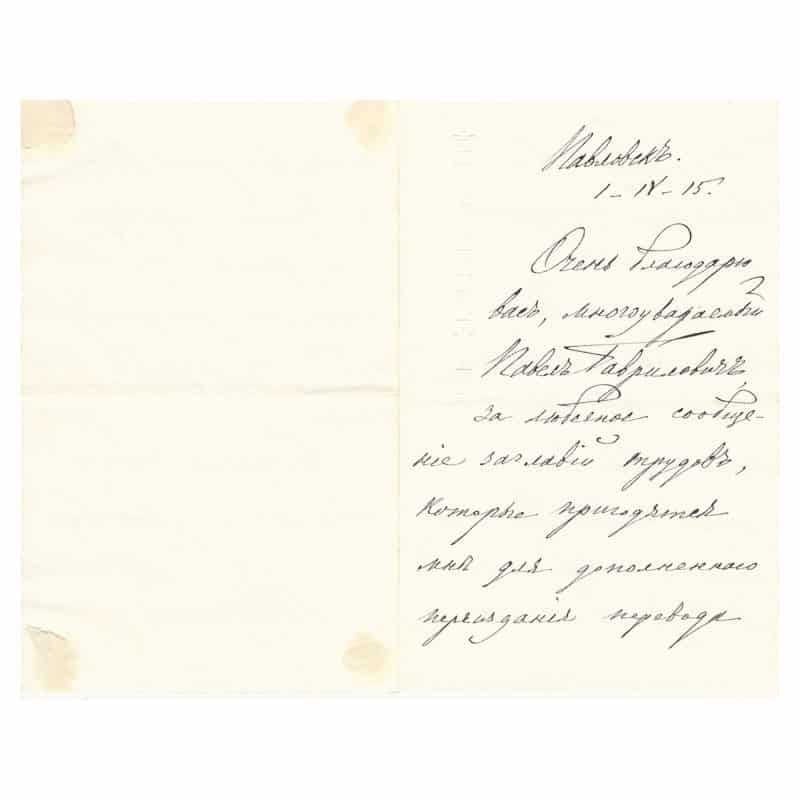 Павловскъ.
1 - IX - 15.
Очень благодарю
васъ, многоуважаемый
Павелъ Гавриловичъ,
за любезное сообще-
ніе заглавій трудовъ,
которые пригодятся
мнѣ для дополненнаго
переизданія перевода